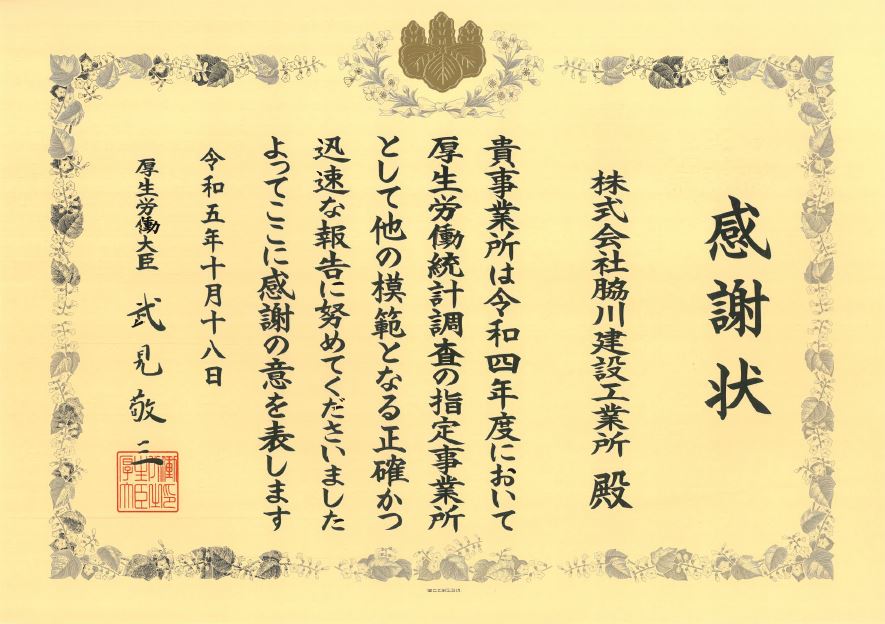 感謝状
株式会社脇川建設工業所 殿
貴事業所は令和四年度において
厚生労働統計調査の指定事業所
として他の模範となる正確かつ
迅速な報告に努めてくださいました
よってここに感謝の意を表します
令和五年十月十八日
厚生労働大臣 武見敬三